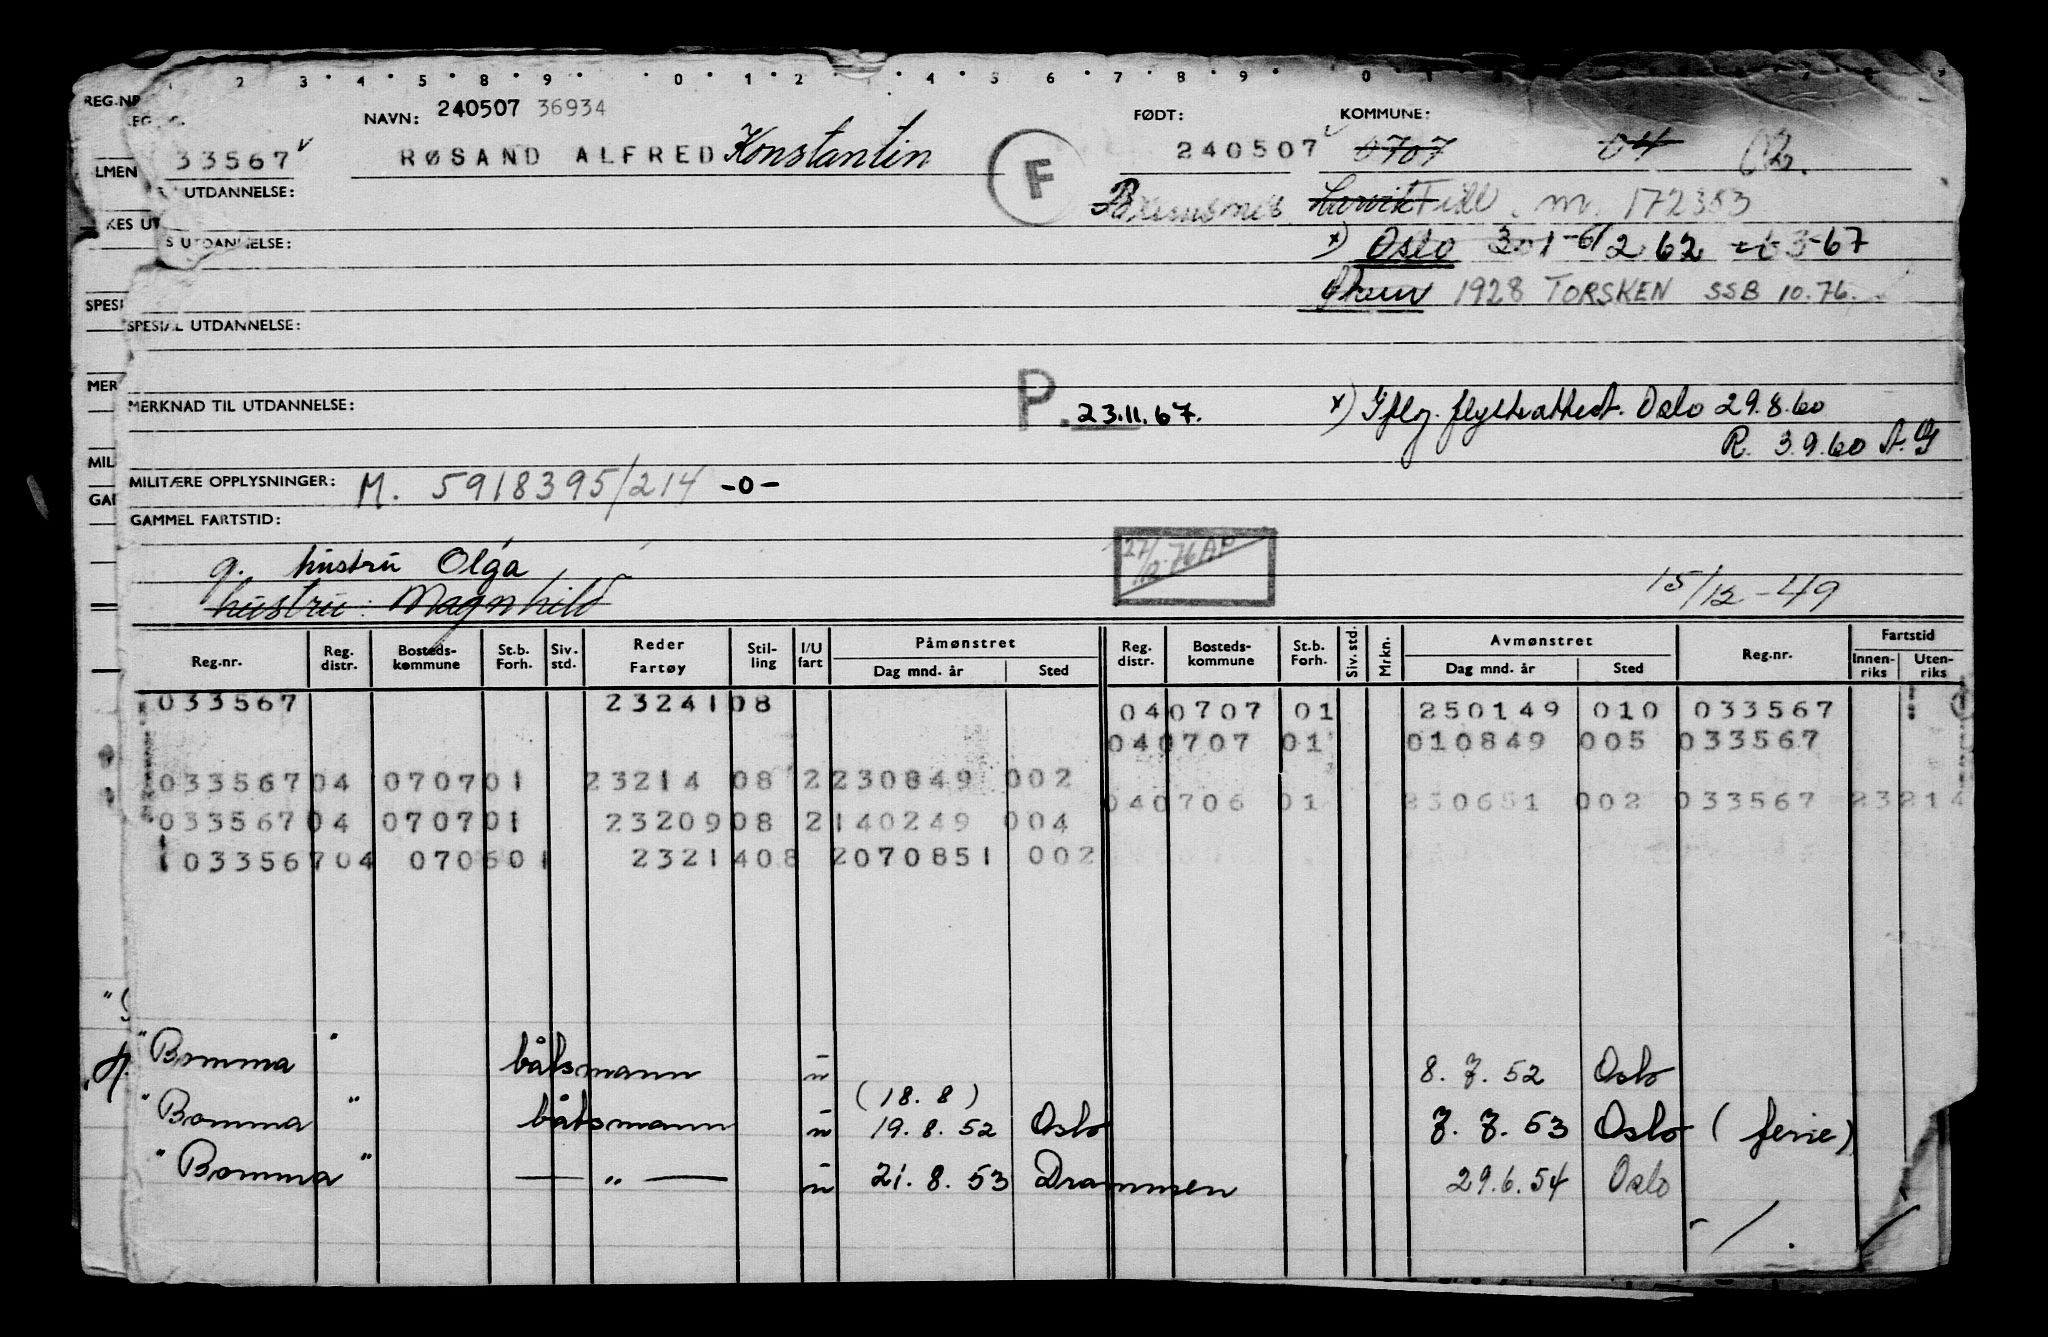 2 3 4 5 8 9 0 1 2 4 5 6 7 8 9 0
REG.NR
NAVN: 240507 36934 FØDT: KOMMUNE:
33567 RØSAND ALFRED Konstantin F 240507 0707 04 02.
LMEN
UTDANNELSE: Larvik m. 172353
KES UT
S UTDANNELSE: x) Oslo 2 62 3-67
1928 TORSKEN SSB 10.76.
SPESI
SPESIAL UTDANNELSE:
MER
MERKNAD TIL UTDANNELSE: P. 23.11.67. x) Oslo 29.8.60
R. 3.9.60 A.G
MIL
MILITÆRE OPPLYSNINGER: M. 5918395/214 -0-
GAM
GAMMEL FARTSTID:
g. hustru Olga 27/12-76 AP
hustru: Magnhild 15/12-49
Reg.nr. Reg. distr. Bosteds-kommune St.b. Forh. Siv. std. Reder Fartøy Stil-ling I/U fart Påmønstret Dag mnd. år Sted Reg. distr. Bosteds-kommune St.b. Forh. Siv. std. Mrkn. Avmønstret Dag mnd. år Sted Reg.nr. Fartstid Innen-riks Uten-riks
033567 23241 08 04 0707 01 250149 010 033567
04 0707 01 010849 005 033567
033567 04 0707 01 23214 08 2 230849 002
04 0706 01 250651 002 033567 23214
033567 04 0707 01 23209 08 2 140249 004
033567 04 0706 01 23214 08 2 070851 002
"Bomma" båtsmann u 8.7.52 Oslo
(18.8)
"Bomma" båtsmann u 19.8.52 Oslo 7.7.53 Oslo (ferie)
"Bomma" — " — u 21.8.53 Drammen 29.6.54 Oslo